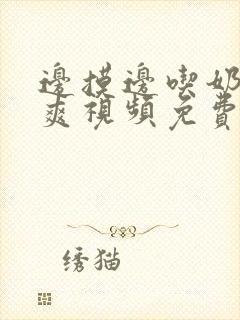 邊摸邊喫奶
爽視頻免費
绣猫